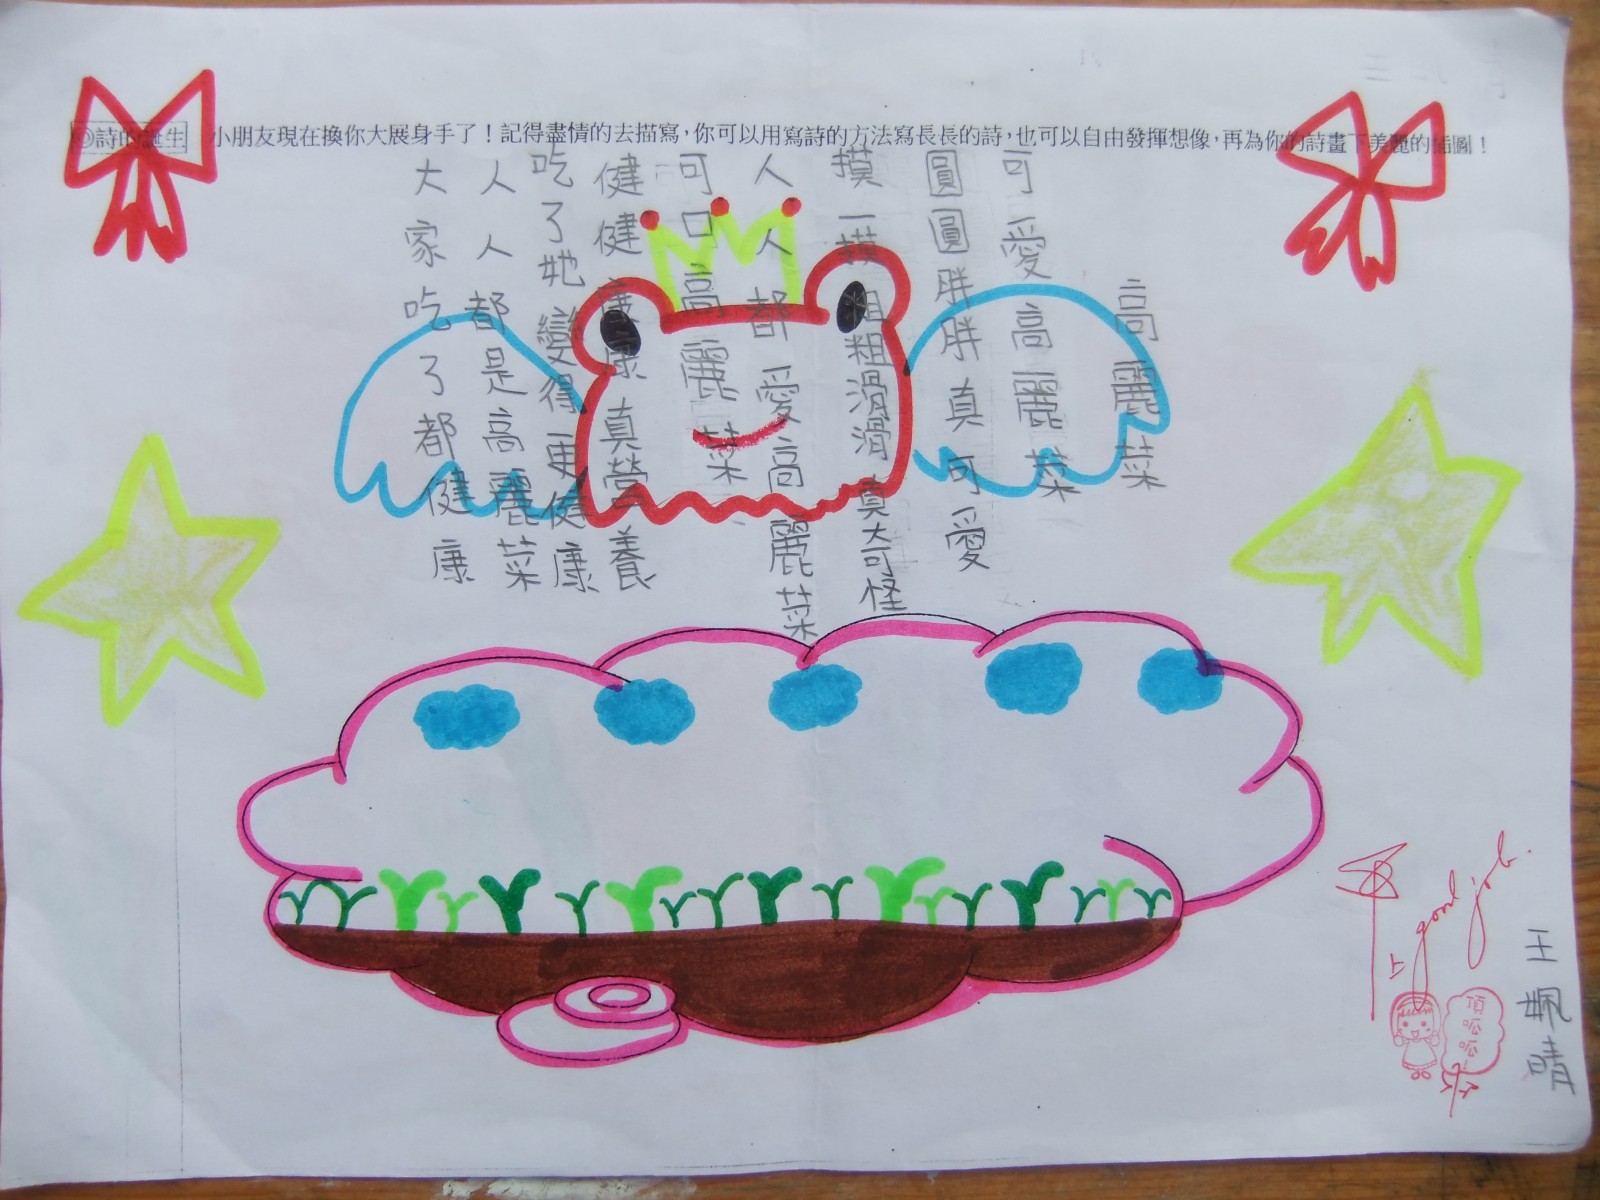 ◎詩的誕生 小朋友現在換你大展身手了！記得盡情的去描寫，你可以用寫詩的方法寫長長的詩，也可以自由發揮想像，再為你的詩畫下美麗的插圖！
高麗菜
可愛高麗菜
圓圓胖胖真可愛
摸一摸粗粗滑滑真大可怪
人人都愛高麗菜
可口高麗菜
健健康康真營養
吃了她變得更健康
人人都是高麗菜
大家吃了都健康
good job.
頂呱呱
王姵晴